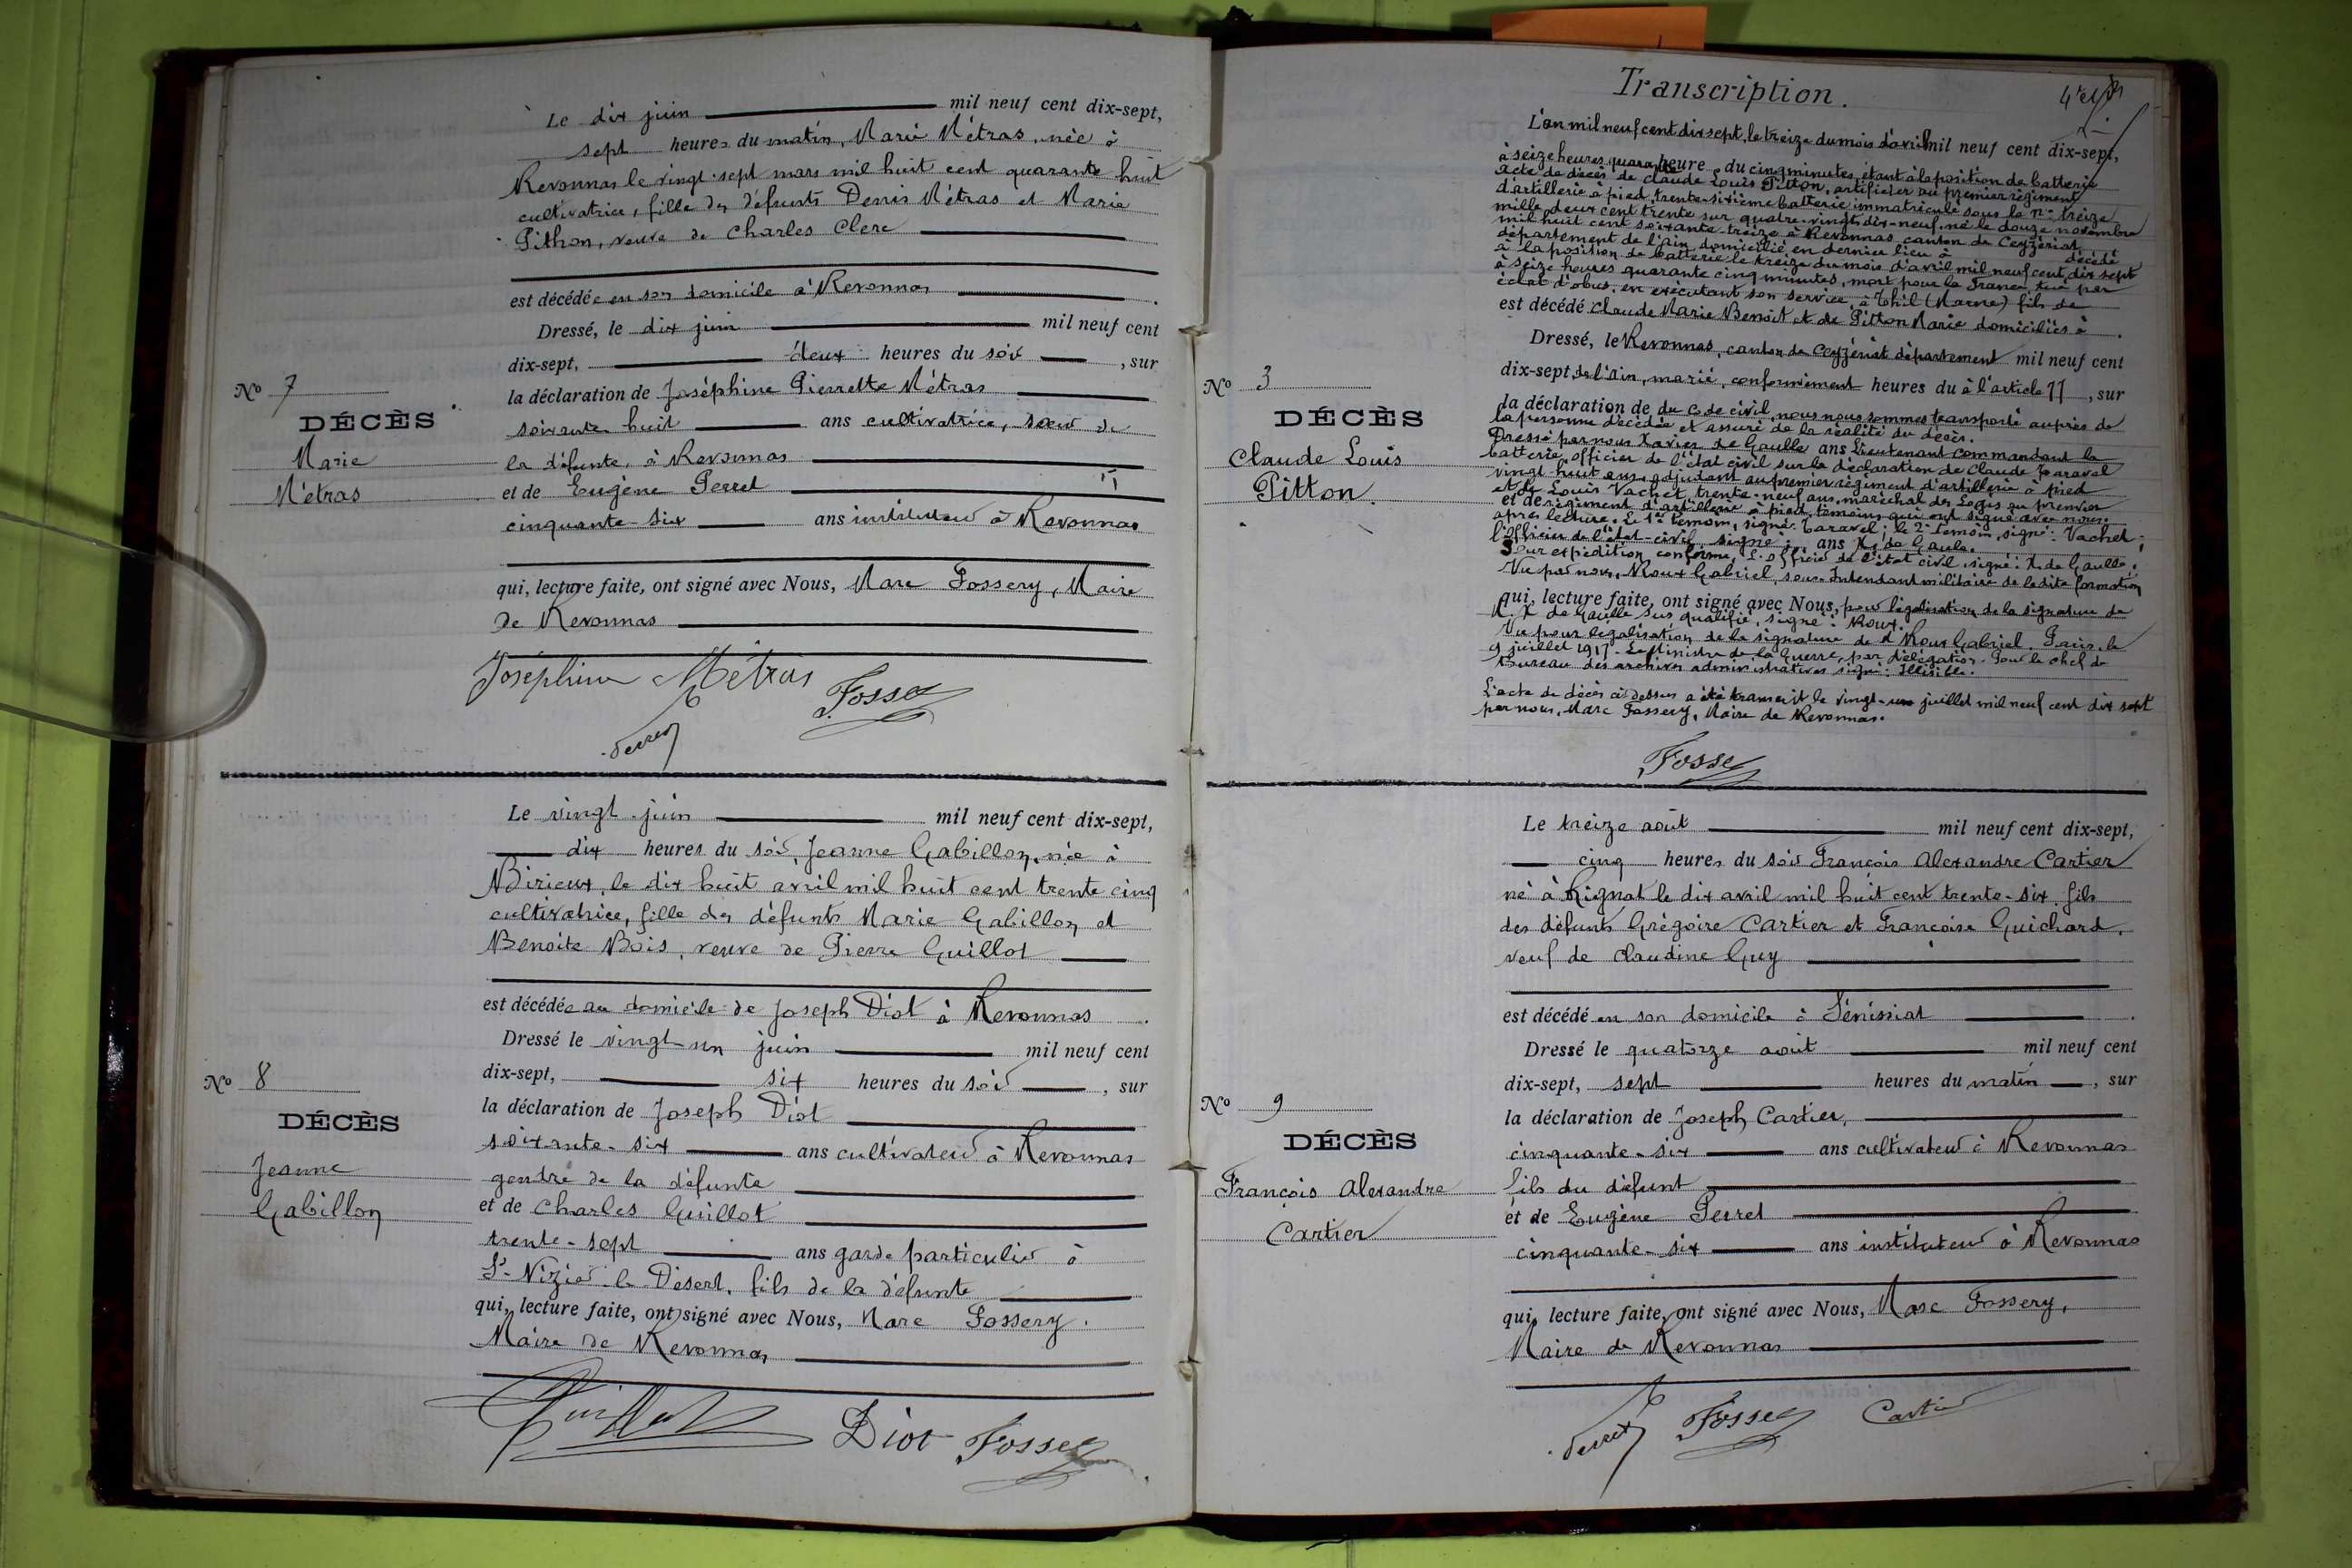 Le dix juin mil neuf cent dix-sept,
sept heures du matin, Marie Métras, née à
Revonnas le vingt-sept mars mil huit cent quarante huit
cultivatrice, fille des défunts Denis Métras et Marie
Pithon, veuve de Charles Clerc
est décédée en son domicile à Revonnas
Dressé, le dix juin mil neuf cent
dix-sept, deux heures du soir, sur
la déclaration de Joséphine Pierrette Métras
soixante huit ans cultivatrice, sœur de
la défunte, à Revonnas
et de Eugène Perret
cinquante-six ans instituteur à Revonnas
qui, lecture faite, ont signé avec Nous, Marc Fossery, Maire
de Revonnas
Joséphine Métras
Fossery
Perret
No 7
DÉCÈS
Marie
Métras
Le vingt juin mil neuf cent dix-sept,
dix heures du soir, Jeanne Gabillon, née à
Birieux, le dix huit avril mil huit cent trente cinq
cultivatrice, fille des défunts Marie Gabillon et
Benoite Bois, veuve de Pierre Guillot
est décédée au domicile de Joseph Diot à Revonnas.
Dressé le vingt-un juin mil neuf cent
dix-sept, six heures du soir, sur
la déclaration de Joseph Diot
soixante-six ans cultivateur à Revonnas
gendre de la défunte
et de Charles Guillot
trente-sept ans garde particulier à
St-Nizier-le Désert, fils de la défunte
qui, lecture faite, ont signé avec Nous, Marc Fossery.
Maire de Revonnas
Guillot Diot Fossery
No 8
DÉCÈS
Jeanne
Gabillon
Transcription.
L'an mil neuf cent dix sept, le treize du mois d'avril mil neuf cent dix-sept,
à seize heures quarante heure du cinq minutes, étant à la position de batterie
acte de décès de Claude Louis Pitton, artificier au premier régiment
d'artillerie à pied, trente-sixième batterie immatriculé sous le n° treize
mille deux cent trente sur quatre-vingt dix-neuf, né le douze novembre
mil huit cent soixante-treize à Revonnas, canton de Ceyzériat
département de l'ain, domicilié en dernier lieu à décédé
à la position de batterie le treize du mois d'avril mil neuf cent dix sept
à seize heures quarante cinq minutes, mort pour la France, tué par
éclat d'obus, en exécutant son service, à Thil (Marne) fils de
est décédé Claude Marie Benoit et de Pitton Marie domiciliés à
Dressé, le Revonnas, canton de Ceyzériat département mil neuf cent
dix-sept, de l'ain, marié, conformément heures du à l'article 77, sur
la déclaration de du code civil, nous nous sommes transporté auprès de
la personne décédée et assuré de la réalité du décès.
Dressé par nous Xavier de Gaulle ans Lieutenant commandant la
batterie, officier de l'état civil sur la déclaration de Claude Taravel
vingt-huit ans, adjudant au premier régiment d'artillerie à pied
et de Louis Vachet, trente-neuf ans, maréchal des Logis au premier
et de régiment d'artillerie à pied, témoins qui ont signé avec nous
après lecture. Le 1er témoin, signé: Taravel; le 2e témoin, signé: Vachet;
l'officier de l'état-civil, signé: ans X. de Gaule.
Pour expédition conforme, L'officier de l'état civil, signé: X. de Gaulle.
Vu par nous, Roux Gabriel, sous-Intendant militaire de ladite formation
qui, lecture faite, ont signé avec Nous, pour légalisation de la signature de
M. X de Gaulle sus qualifié, signé: Roux.
Vu pour légalisation de la signature de M Roux Gabriel. Paris, le
9 juillet 1917. Le Ministre de la Guerre, par délégation. Pour le chef de
Bureau des archives administratives signé: Illisible.
L'acte de décès ci-dessus a été transcrit le vingt-un juillet mil neuf cent dix sept
par nous, Marc Fossery, Maire de Revonnas.
Fossery
No 3
DÉCÈS
Claude Louis
Pitton
Le treize août mil neuf cent dix-sept,
cinq heures du soir François Alexandre Cartier
né à Rignat le dix avril mil huit cent trente-six, fils
des défunts Grégoire Cartier et Françoise Guichard,
veuf de Claudine Guy
est décédé en son domicile à Sénissiat
Dressé le quatorze août mil neuf cent
dix-sept, sept heures du matin, sur
la déclaration de Joseph Cartier,
cinquante-six ans cultivateur à Revonnas
fils du défunt
et de Eugène Perret
cinquante-six ans instituteur à Revonnas
qui, lecture faite, ont signé avec Nous, Marc Fossery,
Maire de Revonnas
Perret Fossery Cartier
No 9
DÉCÈS
François Alexandre
Cartier